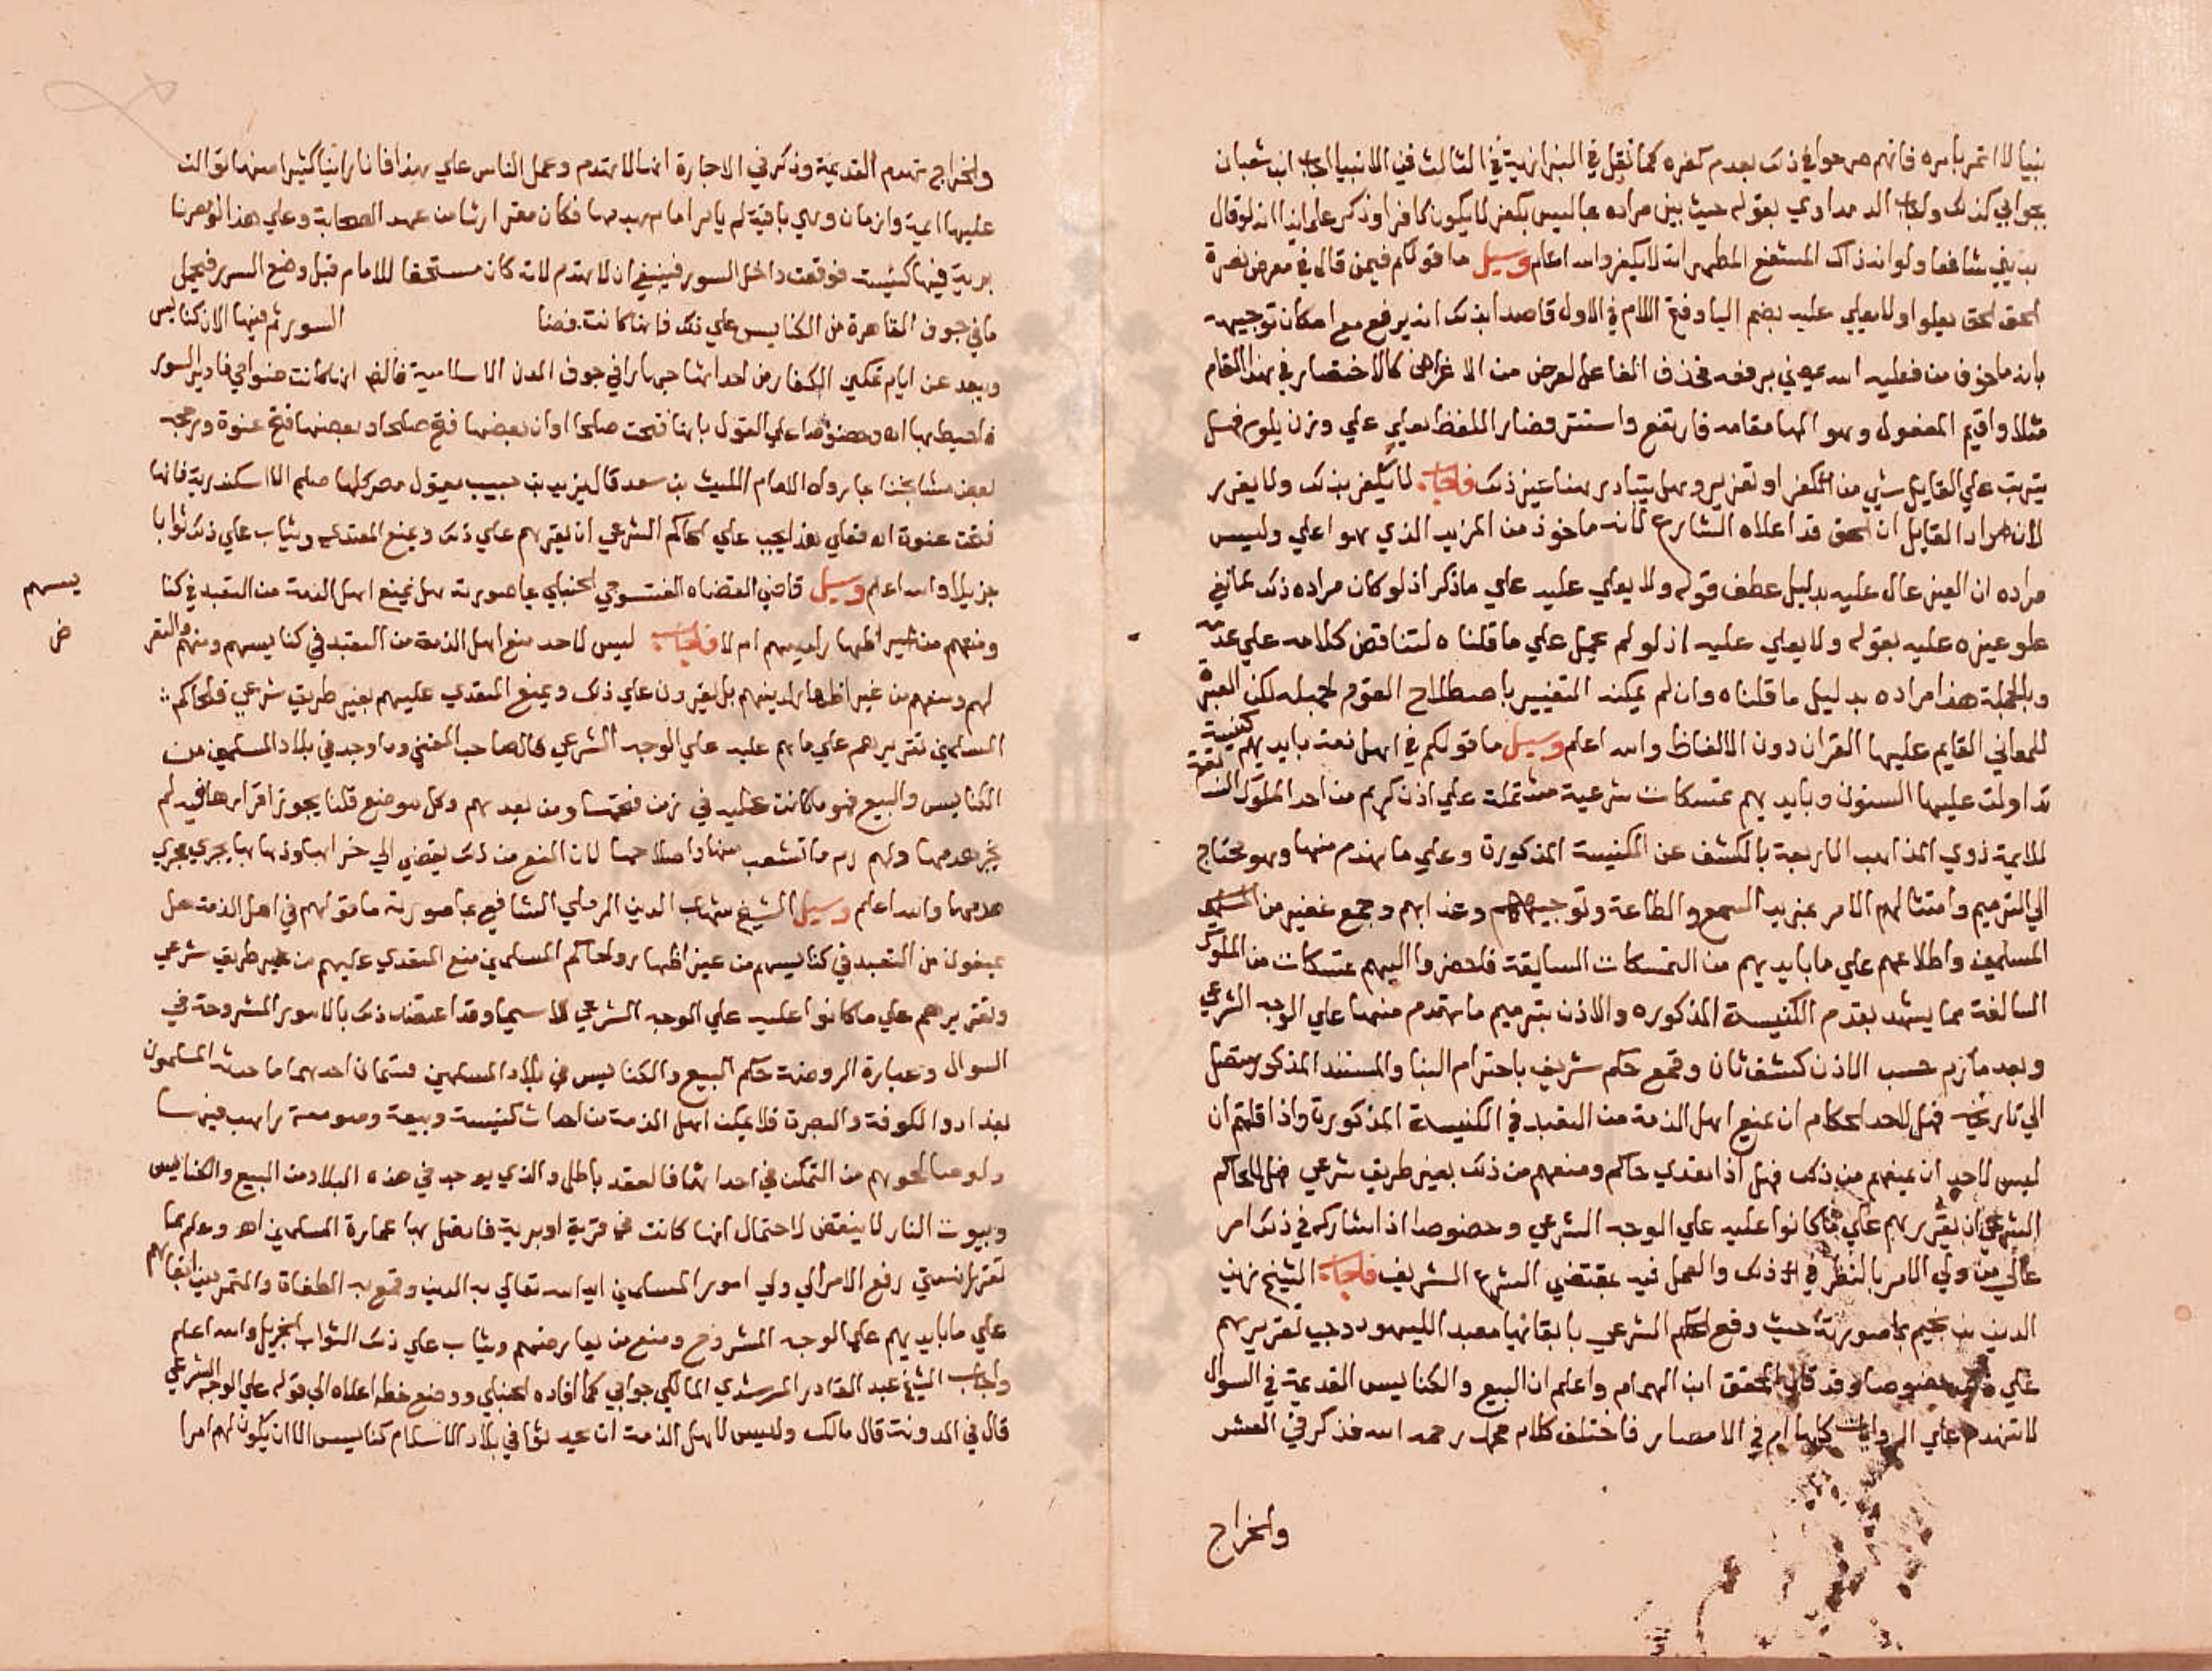 نبيا لا ائتمر بامره فانهم صرحوا في ذلك بعدم كفره كما نقل في البزازية في الثالث في الانبيا اجاب ابن شعبان
بجوابي كذلك واجاب الد مداوي بقوله حيث بين مراده بما ليس بكفر لا يكون كافرا وذكر علماونا انه لو قال
شافعا ولو انه ذاك المستشفع المطهر انه لا يكفر والله اعلم وسيل ما قولكم فيمن قال في معرض نصرة
الحق الحق يعلو ولا يعلي عليه بضم اليا وفتح اللام في الاول قاصدا بذلك انه يرفع مع امكان توجيهه
بانه ماخوذ من فعليه الله بمعني رفعه فحذف الفاعل لغرض من الاغراض كالاختصار في هذا المقام
مثلا واقيم المفعول وهو الها مقامه فارتفع واستتر فصار اللفظ يعلي علي وزن يلوم فهل
يترتب علي القايل شي من الكفر او تعزير وهل يتبادر هنا غير ذلك فاجاب لا يكفر بذلك ولا يعزر
لان مراد القايل ان الحق قد اعلاه الشارع لانه ماخوذ من المزيد الذي هو اعلي وليس
مراده ان الغير عال عليه بدليل عطف قوله ولا يعلي عليه علي ما ذكر اذ لو كان مراده ذلك لما نفي
علو غيره عليه بقوله ولا يعلي عليه اذ لو لم يحمل علي ما قلناه لتناقض كلامه علي
وبالجملة هذا مراده بدليل ما قلناه وان لم يمكنه التعبير باصطلاح القوم لجهله لكن العبرة
للمعاني القايم عليها القران دون الالفاظ والله اعلم وسيل ما قولكم في اهل ذمة بايديهم كنيسة
تداولت عليها السنون وبايديهم تمسكات شرعية مشتملة علي اذن كريم من احد الملوك
للايمة ذوي المذاهب الاربعة بالكشف عن الكنيسة المذكورة وعلي ما يهدم منها وهو محتاج
الي الترميم وامتثالهم الامر بمزيد السمع والطاعة وجمع غفير من المسلمين
المسلمين واطلاعهم علي ما بايديهم من التمسكات السابقة فاحضروا اليهم تمسكات من الملوك
السالفة مما يشهد بقدم الكنيسة المذكوره والاذن بترميم ما تهدم منها علي الوجه الشرعي
وبعد ما رمم حسب الاذن كشف ثان وقع حكم شريف باحترام البنا والمستند المذكور متصل
الي تاريخه فهل لاحد الحكام ان يمنع اهل الذمة من التعبد في الكنيسة المذكورة واذا قلتم ان
ليس لاحد ان يمنعهم من ذلك فهل اذا تعدي حاكم ومنعهم من ذلك بغير طريق شرعي فهل للحاكم
الشرعي ان يقررهم علي ما كانوا عليه علي الوجه الشرعي وخصوصا اذا شاركه في ذلك امر
عالي من ولي الامر بالنظر في ذلك والعمل فيه بمقتضي الشرع الشريف فاجاب الشيخ زين
الدين بن نجيم بما صورته حيث وقع الحكم الشرعي بابقائها معبد الليهود وجب تقريرهم
علي ذلك خصوصا وقد قال المحقق ابن الهمام واعلم ان البيع والكنايس القديمة في السواد
لا تهدم علي الروايات كلها ام في الامصار فاختلف كلام محمد رحمه الله فذكر في العشر
والخراج
والخراج تهدم القديمة وذكر في الاجارة انها لا تهدم وعمل الناس علي هذا فانا راينا كثيرا منها توالت
عليها ايمة وازمان وهي باقية لم يامر امام بهدمها فكان متوارثا من عهد الصحابة وعلي هذا لو مصرنا
برية فيها كنيسة فوقعت داخل السور فينبغي ان لا يهدم لانه كان مستحقا للامام قبل وضع السور فيحمل
ما في جوف القاهرة من الكنايس علي ذلك فانها كانت فضا السور ثم فيها الان كنايس
ويبعد عن ايام تمكين الكفار من احداثها جهارا في جوف المدن الاسلامية فالظ انها كانت ضواحي فادير السور
فاحيط بها انه وخصوصا علي القول بانها فتحت صلحا او ان بعضها فتح صلحا وبعضها فتح عنوة ورجحه
بعض مشايخنا بما رواه الامام الليث بن سعد قال يزيد بن حبيب يقول مصر كلها صلح الا اسكندرية فانها
فتحت عنوة انه فعلي هذا يجب علي الحاكم الشرعي ان يقررهم علي ذلك ويمنع المعتدي ويثاب علي ذلك ثوابا
جزيلا والله اعلم وسيل قاضي القضاه الفتوحي الحنبلي بما صورته هل يمنع اهل الذمة من التعبد في كنا
يسهم
ومنهم من غير اظهار لدينهم ام لا فاجاب ليس لاحد منع اهل الذمة من التعبد في كنايسهم
ض
لهم ومنعهم من غير اظهار لدينهم بل يقرون علي ذلك ويمنع المتعدي عليهم بغير طريق شرعي فلحاكم
المسلمين تقريرهم علي ما هم عليه علي الوجه الشرعي قال صاحب المغني وما وجد في بلاد المسلمين من
الكنايس والبيع فهو ما كانت عليه في زمن فتحها ومن بعدهم وكل موضع قلنا يجوز اقرارها فيه لم
يجز هدمها ولهم رم ما تشعب منها واصلاحها لان المنع من ذلك يفضي الي خرابها وذهابها يجري مجري
هدمها والله اعلم وسيل الشيخ شهاب الدين الرملي الشافعي بما صورته ما قولهم في اهل الذمة هل
يمنعون من التعبد في كنايسهم من غير اظهار ولحاكم المسلمين منع المتعدي عليهم من غير طريق شرعي
وتقريرهم علي ما كانوا عليه علي الوجه الشرعي لا سيما وقد اعتضد ذلك بالامور المشروحة في
السوال وعبارة الروضة حكم البيع والكنايس في بلاد المسلمين قسمان احدهما ما احدثه المسلمون
بغداد والكوفة والبصرة فلا يمكن اهل الذمة من احداث كنيسة وبيعة وصومعة راهب فيها
ولو صالحوهم من التمكن في احداثها فالعقد باطل والذي يوجد في هذه البلاد من البيع والكنايس
وبيوت النار لا ينقض لاحتمال انها كانت في قرية او برية فاتصل بها عمارة المسلمين اه وعلم بما
تقرر رفع الامر الي ولي امور المسلمين ايد الله تعالي به الدين وقمع به الطغاة والمتمردين ابقاهم
علي ما بايديهم علي الوجه المشروح ومنع من يعارضهم ويثاب علي ذلك الثواب الجزيل والله اعلم
واجاب الشيخ عبد القادر المرشدي المالكي جوابي كما افاده الحنبلي ووضع خطه اعلاه الي قوله علي الوجه الشرعي
قال في المدونة قال مالك وليس لاهل الذمة ان يحدثوا في بلاد الاسلام كنايس الا ان يكون لهم امرا